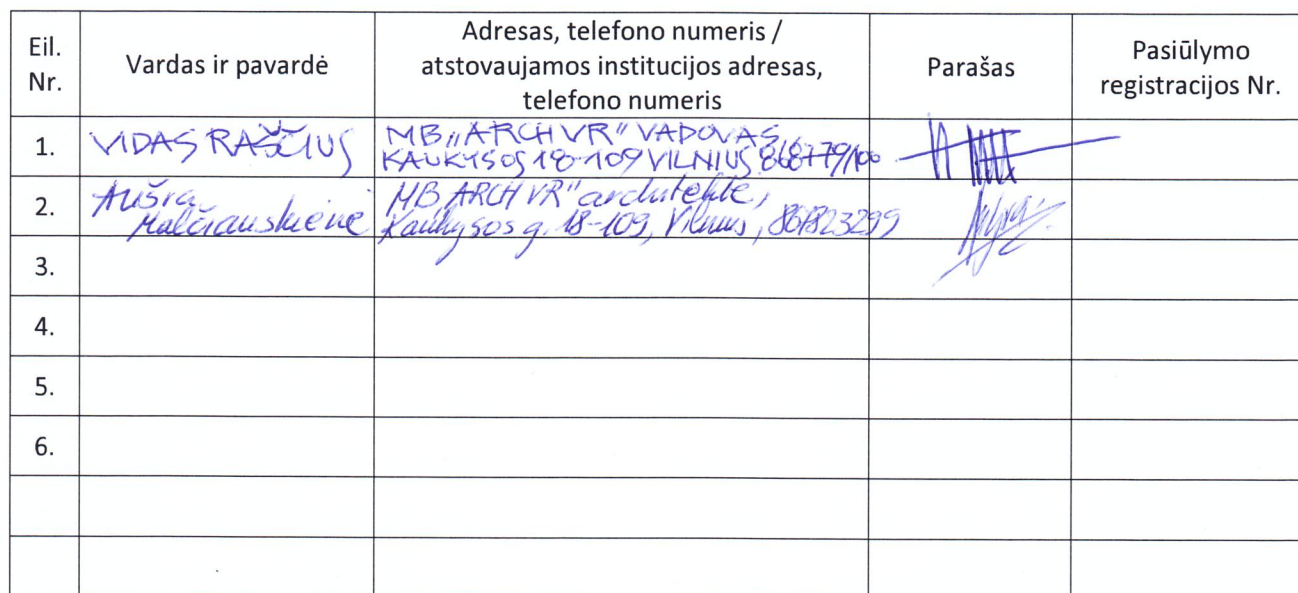 Eil. Nr.
Vardas ir pavardė
Adresas, telefono numeris /
atstovaujamos institucijos adresas,
telefono numeris
Parašas
Pasiūlymo
registracijos Nr.
1.
VIDAS RAŠČIUS
MB „ARCH VR" VADOVAS,
KAUKYSOS 18-109 VILNIUS
2.
Aušra
Malčiauskienė
MB ARCH VR" architektė,
Kaukysos g. 18-109, Vilnius, 861823299
3.
4.
5.
6.